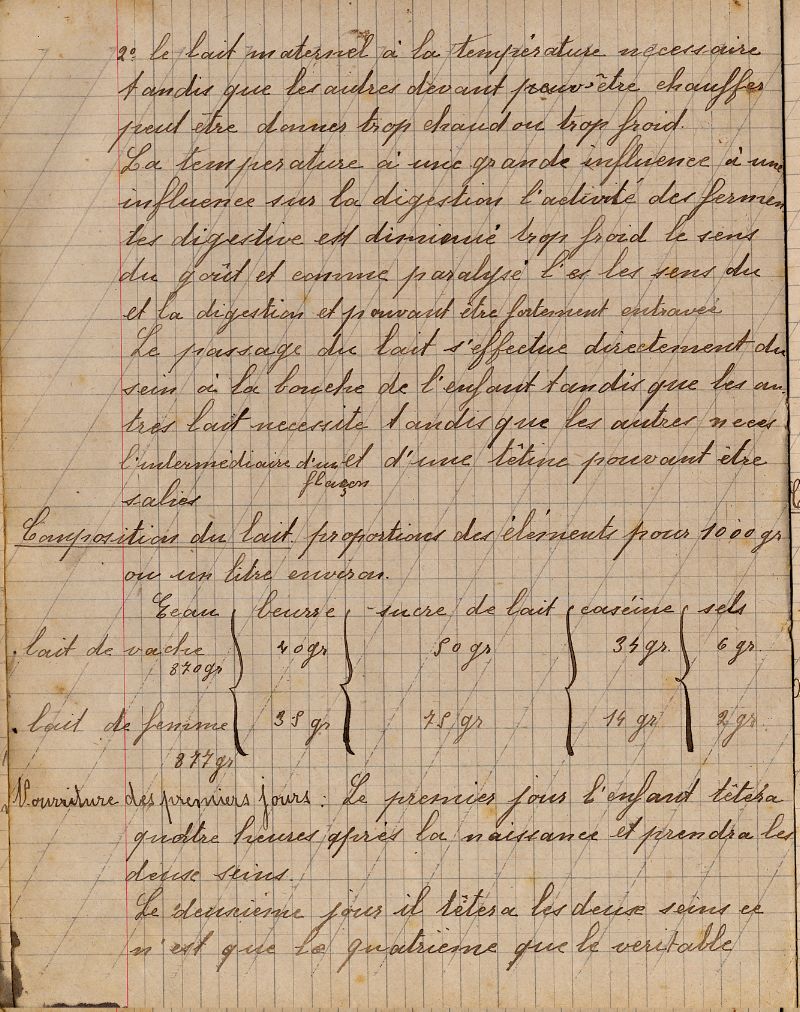 2º le lait maternel à la température necessaire
tandis que les autres devant peuv-être chauffer
peut être donner trop chaud ou trop froid.
La temperature à une grande influence à une
influence sur la digestion l'activité des fermen
tes digestive est diminué trop froid le sens
du goût et comme paralysé l'es les sens du
et la digestion et pouvant être fortement entravée
Le passage du lait s'effectue directement du
sein à la bouche de l'enfant tandis que les au-
tres lait necessite tandis que les autres neces
l'intermediaire d'un flaçon et d'une têtine pouvant être
salies
Composition du lait. proportions des éléments pour 1000 gr
ou un litre environ.
Eeau beurre sucre de lait caséine sels
lait de vache 870gr 40gr 50 gr 34gr. 6 gr.
lait de femme 877gr 35 gr 75 gr 14 gr 2 gr
Nourriture des premiers jours : Le premier jour l'enfant têtera
quatre heures après la naissance et prendra les
deux seins.
Le deuxieme jour il têtera les deux seins ce
n'est que le quatrième que le veritable